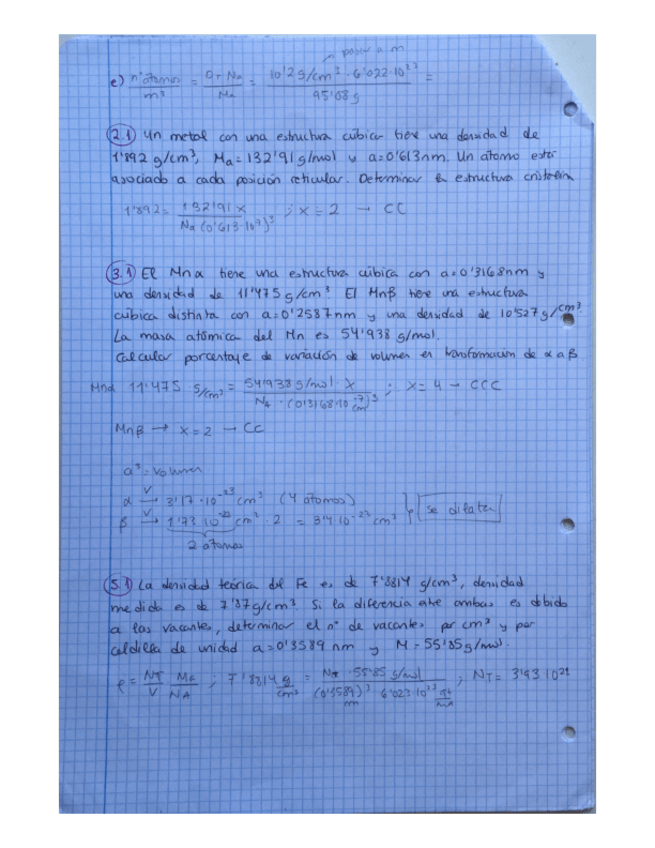 pasar a m
e) nº átomos / m³ = D · Na / Ma = 10'2 g/cm³ · 6'022·10²³ / 95'68 g =
2.1) Un metal con una estructura cúbica tiene una densidad de
1'892 g/cm³, Ma = 132'91 g/mol y a = 0'613 nm. Un átomo está
asociado a cada posición reticular. Determinar la estructura cristalina
1'892 = 132'91 x / Na (0'613·10⁻⁷)³ ; x = 2 → CC
3.1) El Mn α tiene una estructura cúbica con a = 0'3168 nm y
una densidad de 11'475 g/cm³. El Mnβ tiene una estructura
cúbica distinta con a = 0'2587 nm y una densidad de 10'527 g/cm³.
La masa atómica del Mn es 54'938 g/mol.
Calcular porcentaje de variación de volumen en transformación de α a β
Mnα 11'475 g/cm³ = 54'938 g/mol · x / NA · (0'3168·10⁻⁷)³ cm ; x = 4 → CCC
Mnβ → x = 2 → CC
a³ = volumen
α V→ 3'17·10⁻²³ cm³ (4 átomos)
β V→ 1'73·10⁻²³ cm³ · 2 = 3'4·10⁻²³ cm³ } se dilata
2 átomos
5.1) La densidad teórica del Fe es de 7'8814 g/cm³, densidad
medida es de 7'87 g/cm³. Si la diferencia entre ambas es debido
a las vacantes, determinar el nº de vacantes por cm³ y por
celdilla de unidad a = 0'3589 nm y M = 55'85 g/mol.
ρ = NT / V Ma / NA ; 7'8814 g/cm³ = NT · 55'85 g/mol / (0'3589)³ 6'023·10²³ ; NT = 3'93·10²¹